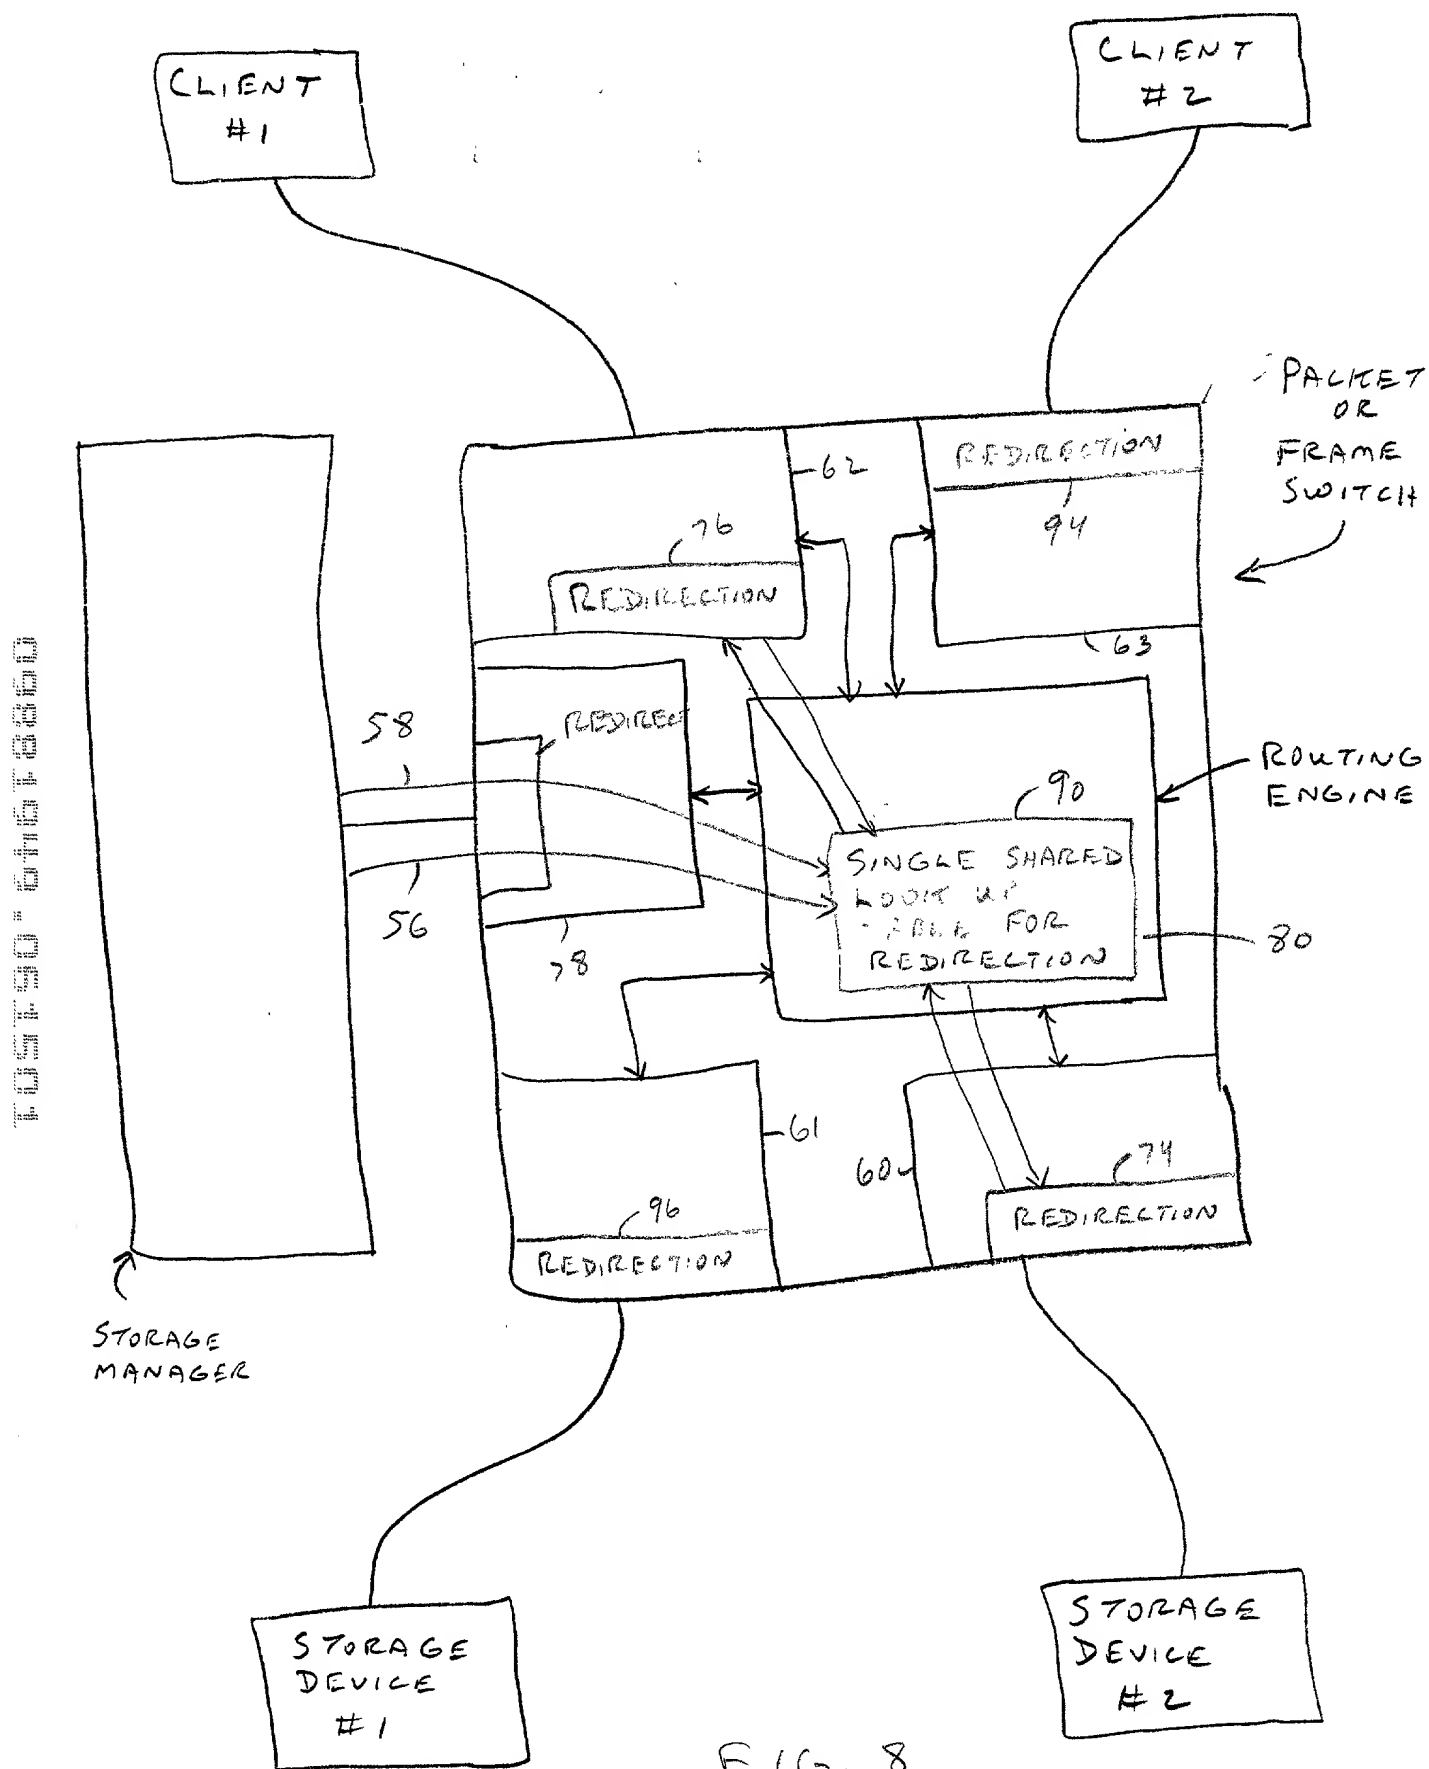 CLIENT
#1
CLIENT
#2
PACKET
OR
FRAME
SWITCH
62
REDIRECTION
94
76
REDIRECTION
63
58
REDIREC
ROUTING
ENGINE
90
SINGLE SHARED
LOOK UP
FOR
REDIRECTION
80
56
78
61
60
74
REDIRECTION
96
REDIRECTION
STORAGE
MANAGER
STORAGE
DEVICE
#1
STORAGE
DEVICE
#2
FIG. 8